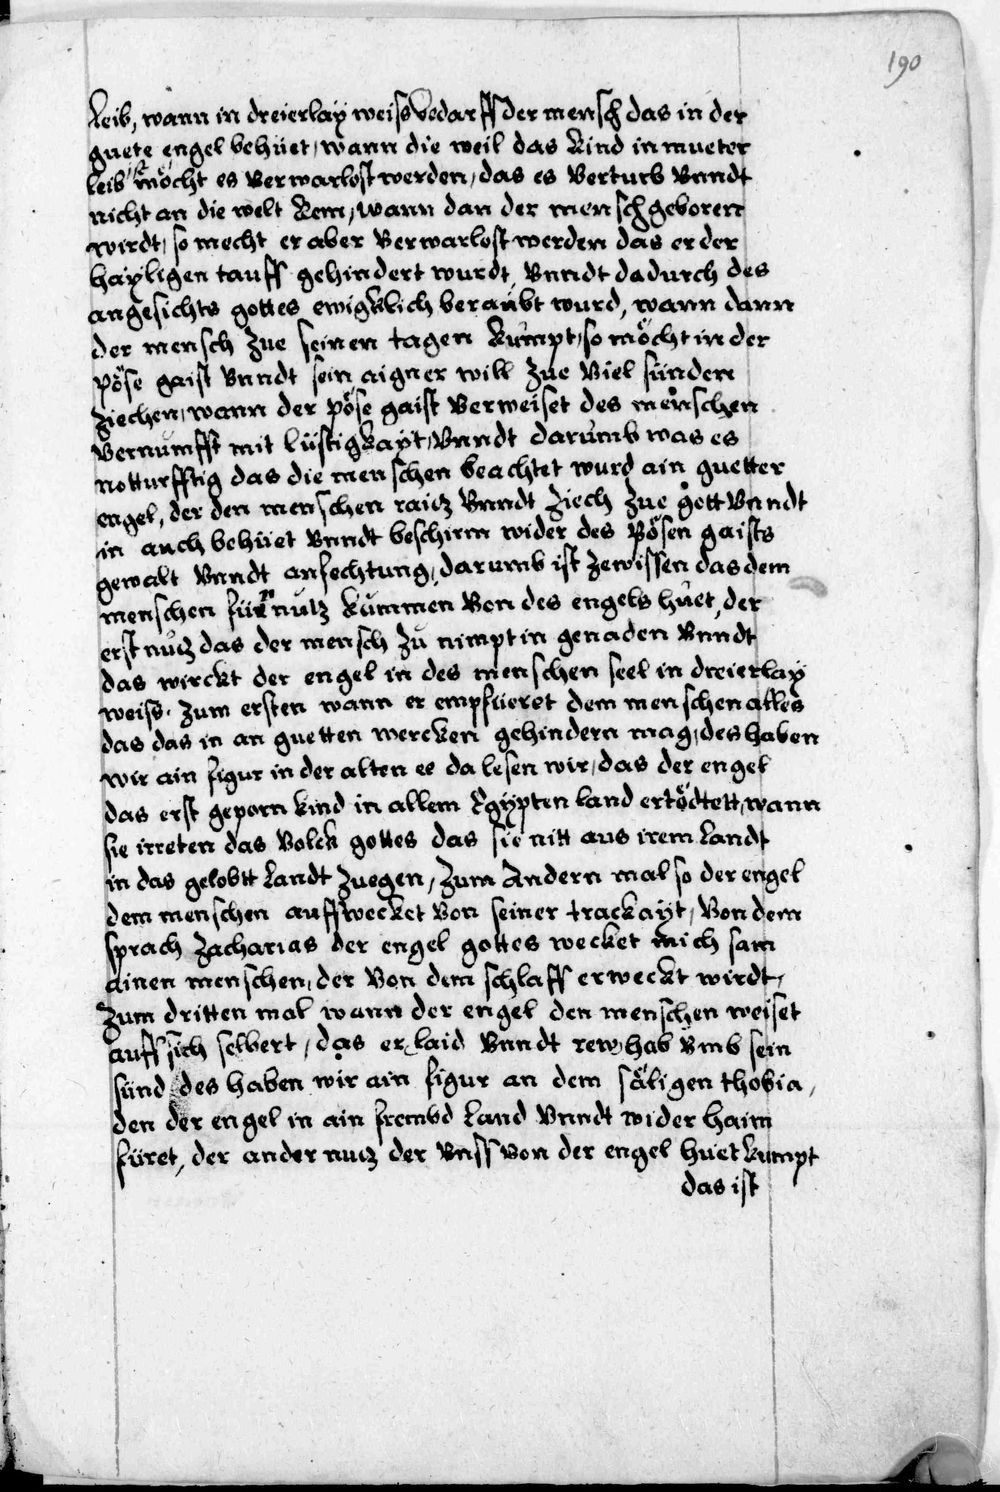 190
Leib, wann in dreierlay weiss bedarff der mensch das in der
guete engel behüet, wann die weil das kind in mueter
leib ist möcht es verwarlost werden, das es verturb vnndt
nicht an die welt kem, wann dan der mensch geboren
wirdt, so mecht er aber verwarlost werden das er der
hayligen tauff gehindert wurdt, vnndt dadurch des
angesichts gottes ewigklich beraubt wurd, wann dann
der mensch zue seinen tagen kumpt, so möcht in der
pöse gaist vnndt sein aigner will zue viel sünden
ziechen, wann der pöse gaist verweiset des menschen
vernumfft mit lüstigkayt, vnndt darumb was es
notturfftig das die menschen beachtet wurd ain guetter
engel, der den menschen raitz vnndt ziech zue gott vnndt
in auch behüet vnndt beschirm wider des bösen gaists
gewalt vnndt anfechtung, darumb ist zewissen das dem
menschen für nutz kummen von des engels huet, der
erst nutz das der mensch zu nimpt in genaden vnndt
das wirckt der engel in des menschen seel in dreierlay
weiss. zum ersten wann er empfüeret dem menschen alles
das das in an guetten wercken gehindern mag, des haben
wir ain figur in der alten ee da lesen wir, das der engel
das erst geporn kind in allem Egypten land ertödtett, wann
sie irreten das volck gottes das sie nitt aus irem Landt
in das gelobtt Landt zuegen, zum Andern mal so der engel
dem menschen auffwecket von seiner trackayt, von dem
sprach Zacharias der engel gottes wecket mich sam
ainen menschen, der von dem schlaff erweckt wirdt,
zum dritten mal wann der engel den menschen weiset
auff sich selbert, das er laid vnndt rew hab vmb sein
sünd des haben wir ain figur an dem säligen thobia,
den der engel in ain frembd Land vnndt wider haim
füret, der ander nutz der vnss von der engel huet kumpt
das ist